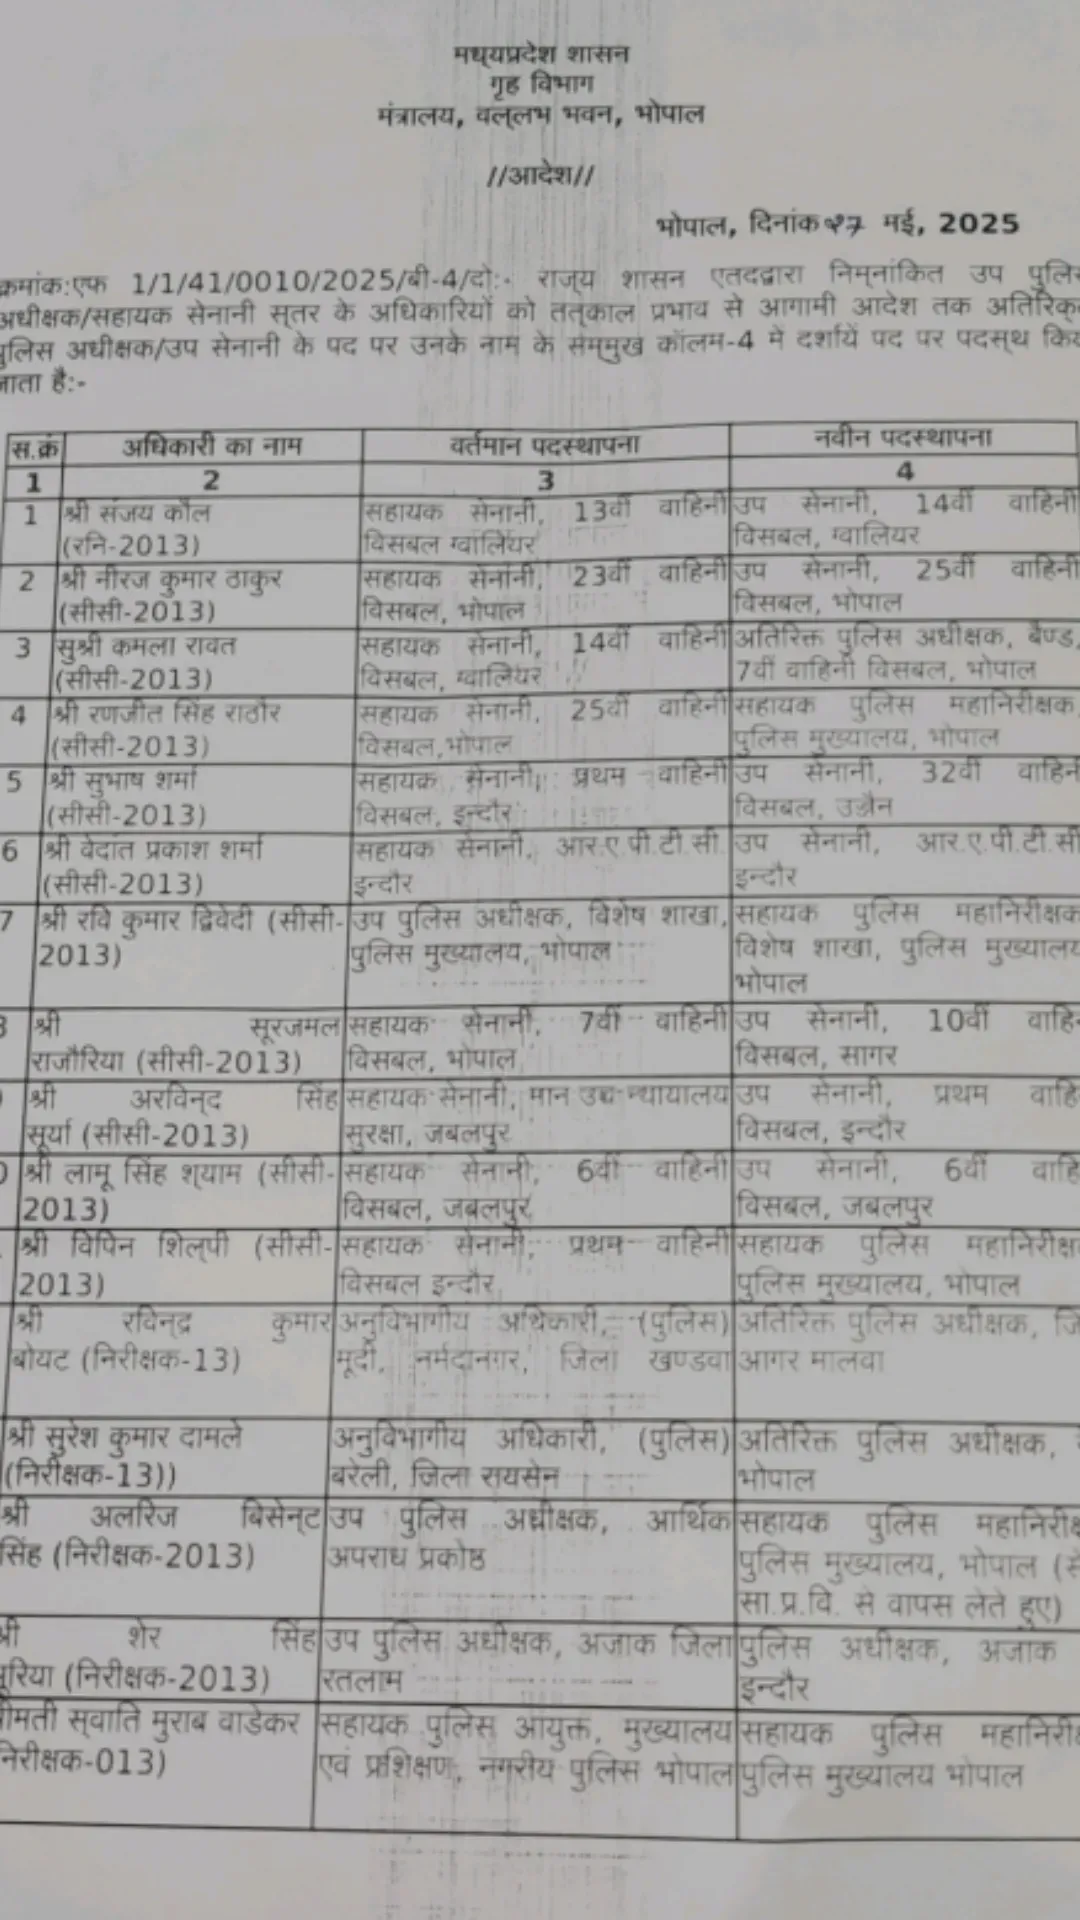 मध्यप्रदेश शासन
गृह विभाग
मंत्रालय, वल्लभ भवन, भोपाल
//आदेश//
भोपाल, दिनांक २७ मई, 2025
क्रमांक:एफ 1/1/41/0010/2025/बी-4/दो:- राज्य शासन एतदद्वारा निम्नांकित उप
अधीक्षक/सहायक सेनानी स्तर के अधिकारियों को तत्काल प्रभाव से आगामी आदेश तक
पुलिस अधीक्षक/उप सेनानी के पद पर उनके नाम के सम्मुख कॉलम-4 में दर्शाये पद पर पदस्थ
जाता है:-
स.क्रं अधिकारी का नाम वर्तमान पदस्थापना नवीन पदस्थापना
1 2 3 4
1 श्री संजय कौल सहायक सेनानी, 13वीं वाहिनी उप सेनानी, 14वीं वाहिनी
(रनि-2013) विसबल ग्वालियर विसबल, ग्वालियर
2 श्री नीरज कुमार ठाकुर सहायक सेनानी, 23वीं वाहिनी उप सेनानी, 25वीं वाहिनी
(सीसी-2013) विसबल, भोपाल विसबल, भोपाल
3 सुश्री कमला रावत सहायक सेनानी, 14वीं वाहिनी अतिरिक्त पुलिस अधीक्षक, बैण्ड,
(सीसी-2013) विसबल, ग्वालियर 7वीं वाहिनी विसबल, भोपाल
4 श्री रणजीत सिंह राठौर सहायक सेनानी, 25वीं वाहिनी सहायक पुलिस महानिरीक्षक
(सीसी-2013) विसबल,भोपाल पुलिस मुख्यालय, भोपाल
5 श्री सुभाष शर्मा सहायक सेनानी, प्रथम वाहिनी उप सेनानी, 32वीं
(सीसी-2013) विसबल, इन्दौर विसबल, उज्जैन
6 श्री वेदांत प्रकाश शर्मा सहायक सेनानी, आर.ए.पी.टी.सी. उप सेनानी, आर.ए.पी.टी.सी
(सीसी-2013) इन्दौर इन्दौर
7 श्री रवि कुमार द्विवेदी (सीसी- उप पुलिस अधीक्षक, विशेष शाखा, सहायक पुलिस महानिरीक्षक
2013) पुलिस मुख्यालय, भोपाल विशेष शाखा, पुलिस मुख्यालय
भोपाल
श्री सूरजमल सहायक सेनानी, 7वीं वाहिनी उप सेनानी, 10वीं
राजौरिया (सीसी-2013) विसबल, भोपाल विसबल, सागर
श्री अरविन्द सिंह सहायक सेनानी, मान उच न्यायालय उप सेनानी, प्रथम
सूर्या (सीसी-2013) सुरक्षा, जबलपुर विसबल, इन्दौर
श्री लामू सिंह श्याम (सीसी- सहायक सेनानी, 6वीं वाहिनी उप सेनानी, 6वीं
2013) विसबल, जबलपुर विसबल, जबलपुर
श्री विपिन शिल्पी (सीसी- सहायक सेनानी, प्रथम वाहिनी सहायक पुलिस
2013) विसबल इन्दौर पुलिस मुख्यालय, भोपाल
श्री रविन्द्र कुमार अनुविभागीय अधिकारी, (पुलिस) अतिरिक्त पुलिस अधीक्षक,
बोयट (निरीक्षक-13) मूदी, नर्मदानगर, जिला खण्डवा आगर मालवा
श्री सुरेश कुमार दामले अनुविभागीय अधिकारी, (पुलिस) अतिरिक्त पुलिस अधीक्षक,
(निरीक्षक-13)) बरेली, जिला रायसेन भोपाल
श्री अलरिज बिसेन्ट उप पुलिस अधीक्षक, आर्थिक सहायक पुलिस
सिंह (निरीक्षक-2013) अपराध प्रकोष्ठ पुलिस मुख्यालय, भोपाल
सा.प्र.वि. से वापस लेते हुए)
शेर सिंह उप पुलिस अधीक्षक, अजाक जिला पुलिस अधीक्षक, अजाक
(निरीक्षक-2013) रतलाम इन्दौर
स्वाति मुराब वाडेकर सहायक पुलिस आयुक्त, मुख्यालय सहायक पुलिस
एवं प्रशिक्षण, नगरीय पुलिस भोपाल पुलिस मुख्यालय भोपाल